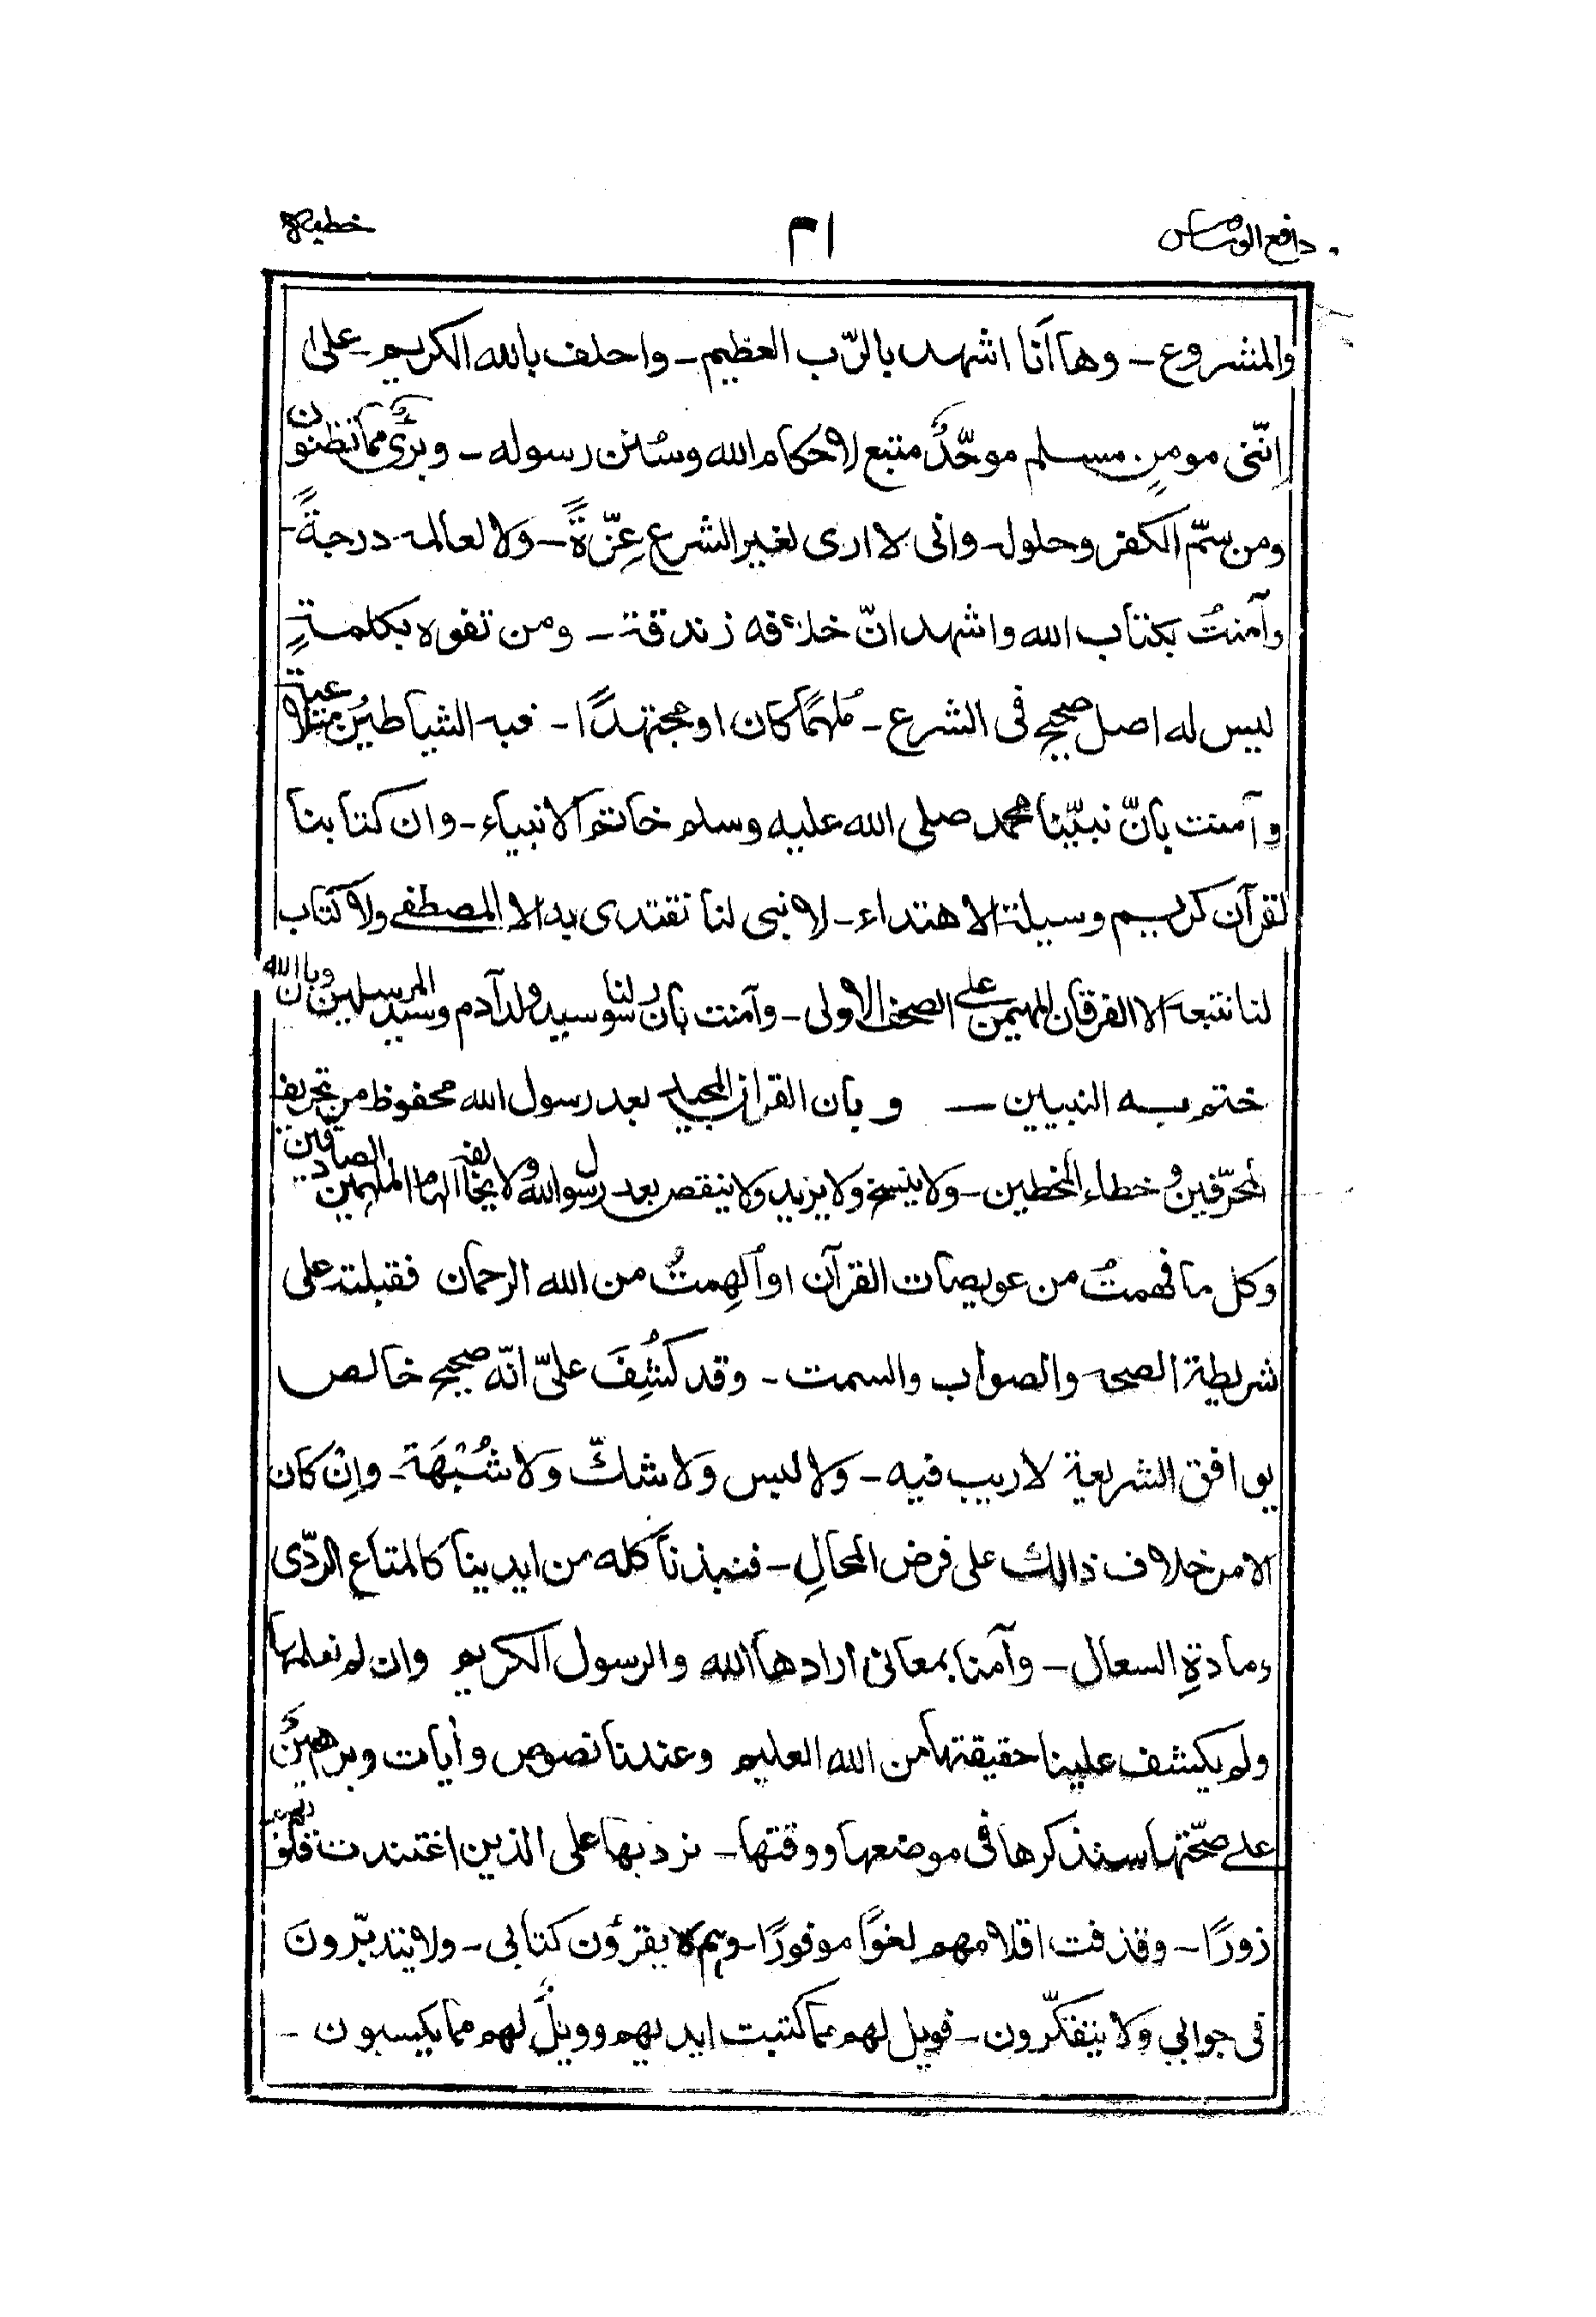 دافع الوساوس
٢١
خطبه
والمشروع - وها اَنا اشهد بالرّب العظيم - واحلف بالله الكريم على
اِنّنى مومنٍ مسلم موحّدٌ متبع لاحكام الله وسُنن رسوله - وبرىٌ مما تظنون
ومن سمّ الكفر وحلوله وانى لا ارى لغير الشرع عِزّةً - وَلا لعالمه درجةً -
وآمنتُ بكتاب الله واشهد انّ خلافه زندقة - ومن تفوه بكلمةٍ
ليس له اصل صحيح فى الشرع - مُلهمًا كان او مجتهدًا - فبه الشياطينُ متلاعبة
وآمنت بانّ نبيّنا محمد صلى الله عليه وسلم خاتم الانبياء - وان كتابنا
القرآن كريم وسيلة الاهتداء - لا نبى لنا نقتدى به الا المصطفى ولا كتاب
لنا نتبعه الا الفرقان المهيمن على الصحف الاولى - وآمنت بان رسولنا سيد ولد آدم وسيد المرسلين وبان الله
ختم به النبيين - وبان القران المجيد بعد رسول الله محفوظ من تحريف
المحرّفين وخطاء المخطين - ولا ينسخ ولا يزيد ولا ينقص بعد رسول الله ولا يخالفه الهام الملهمين الصادقين
وكل ما فهمتُ من عويصات القرآن او اُلهِمتُ من الله الرحمان فقبلته على
شريطة الصحه والصواب والسمت - وقد كُشِفَ علىّ انّه صحيح خالص
يوافق الشريعة لا ريب فيه - وَلا لبس وَلا شكّ وَلا شُبْهَة - واِنْ كان
الامر خلاف ذالك على فرض المحالِ - فنبذنا كله من ايدينا كالمتاع الردّى
ومادةِ السعال - وآمنا بمعانى ارادها الله والرسول الكريم وان لم نعلمها
ولم يكشف علينا حقيقتها من الله العليم وعندنا نصوص وأيات وبرهينُ
على صحّتها سنذكرها فى موضعها ووقتها - نرد بها على الذين اغتندت قلوبهم
زورًا - وقذفت اقلامهم لغوًا موفورًا - وهم لا يقرؤن كتابى - ولا يتدبّرون
فى جوابى وَلا يتفكّرون - فويل لهم مما كتبت ايديهم وويلٌ لهم مما يكسبون -